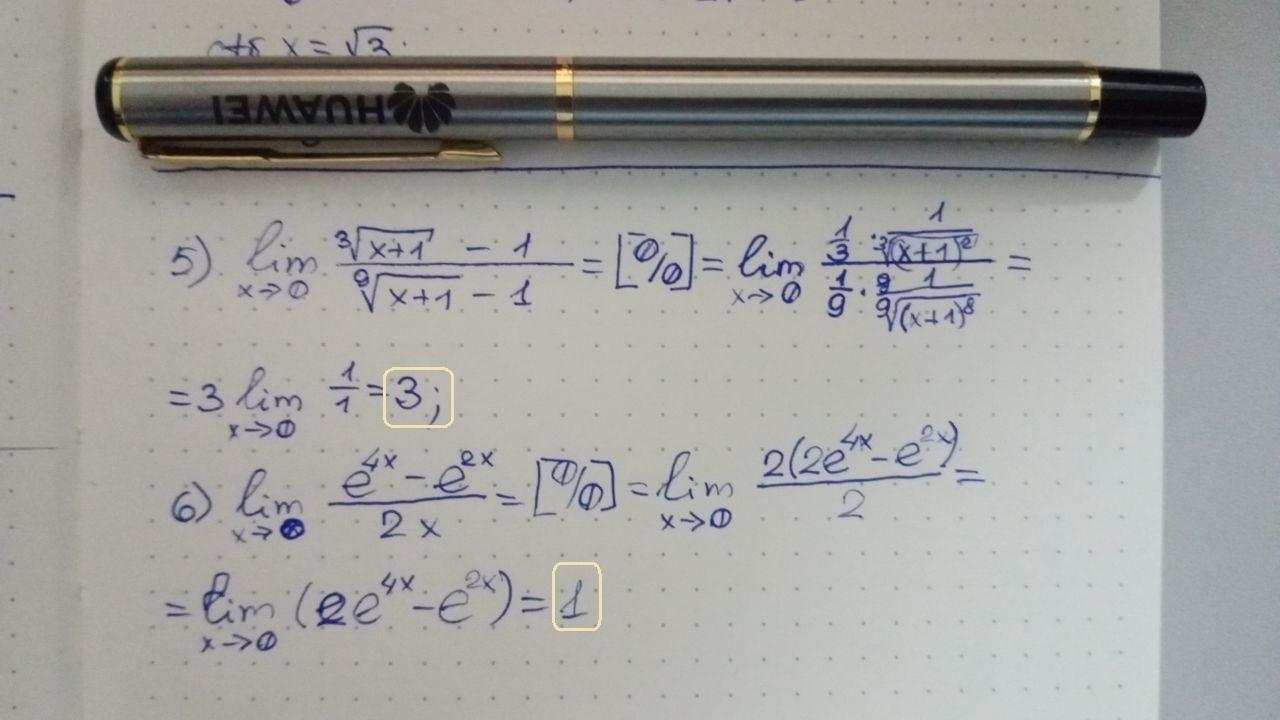 x = √2.
HUAWEI
5) lim x→0 (∛(x+1) − 1)/(⁹√(x+1) − 1) = [0/0] = lim x→0 (1/3 · 1/∛(x+1)²)/(1/9 · 1/⁹√(x+1)⁸) =
= 3 lim x→0 1/1 = 3;
6) lim x→0 (e^4x − e^2x)/(2x) = [0/0] = lim x→0 (2(2e^4x − e^2x))/2 =
= lim x→0 (2e^4x − e^2x) = 1